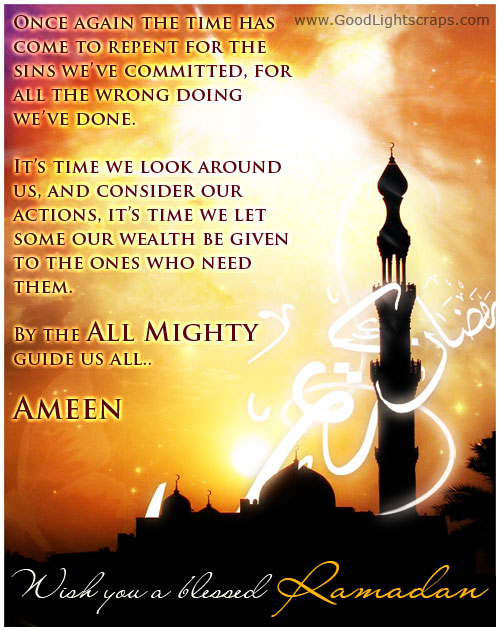 www.GoodLightscraps.com
Once again the time has
come to repent for the
sins we've committed, for
all the wrong doing
we've done.
It's time we look around
us, and consider our
actions, it's time we let
some our wealth be given
to the ones who need
them.
By the All Mighty
guide us all..
Ameen
رمضان كريم
Wish you a blessed Ramadan